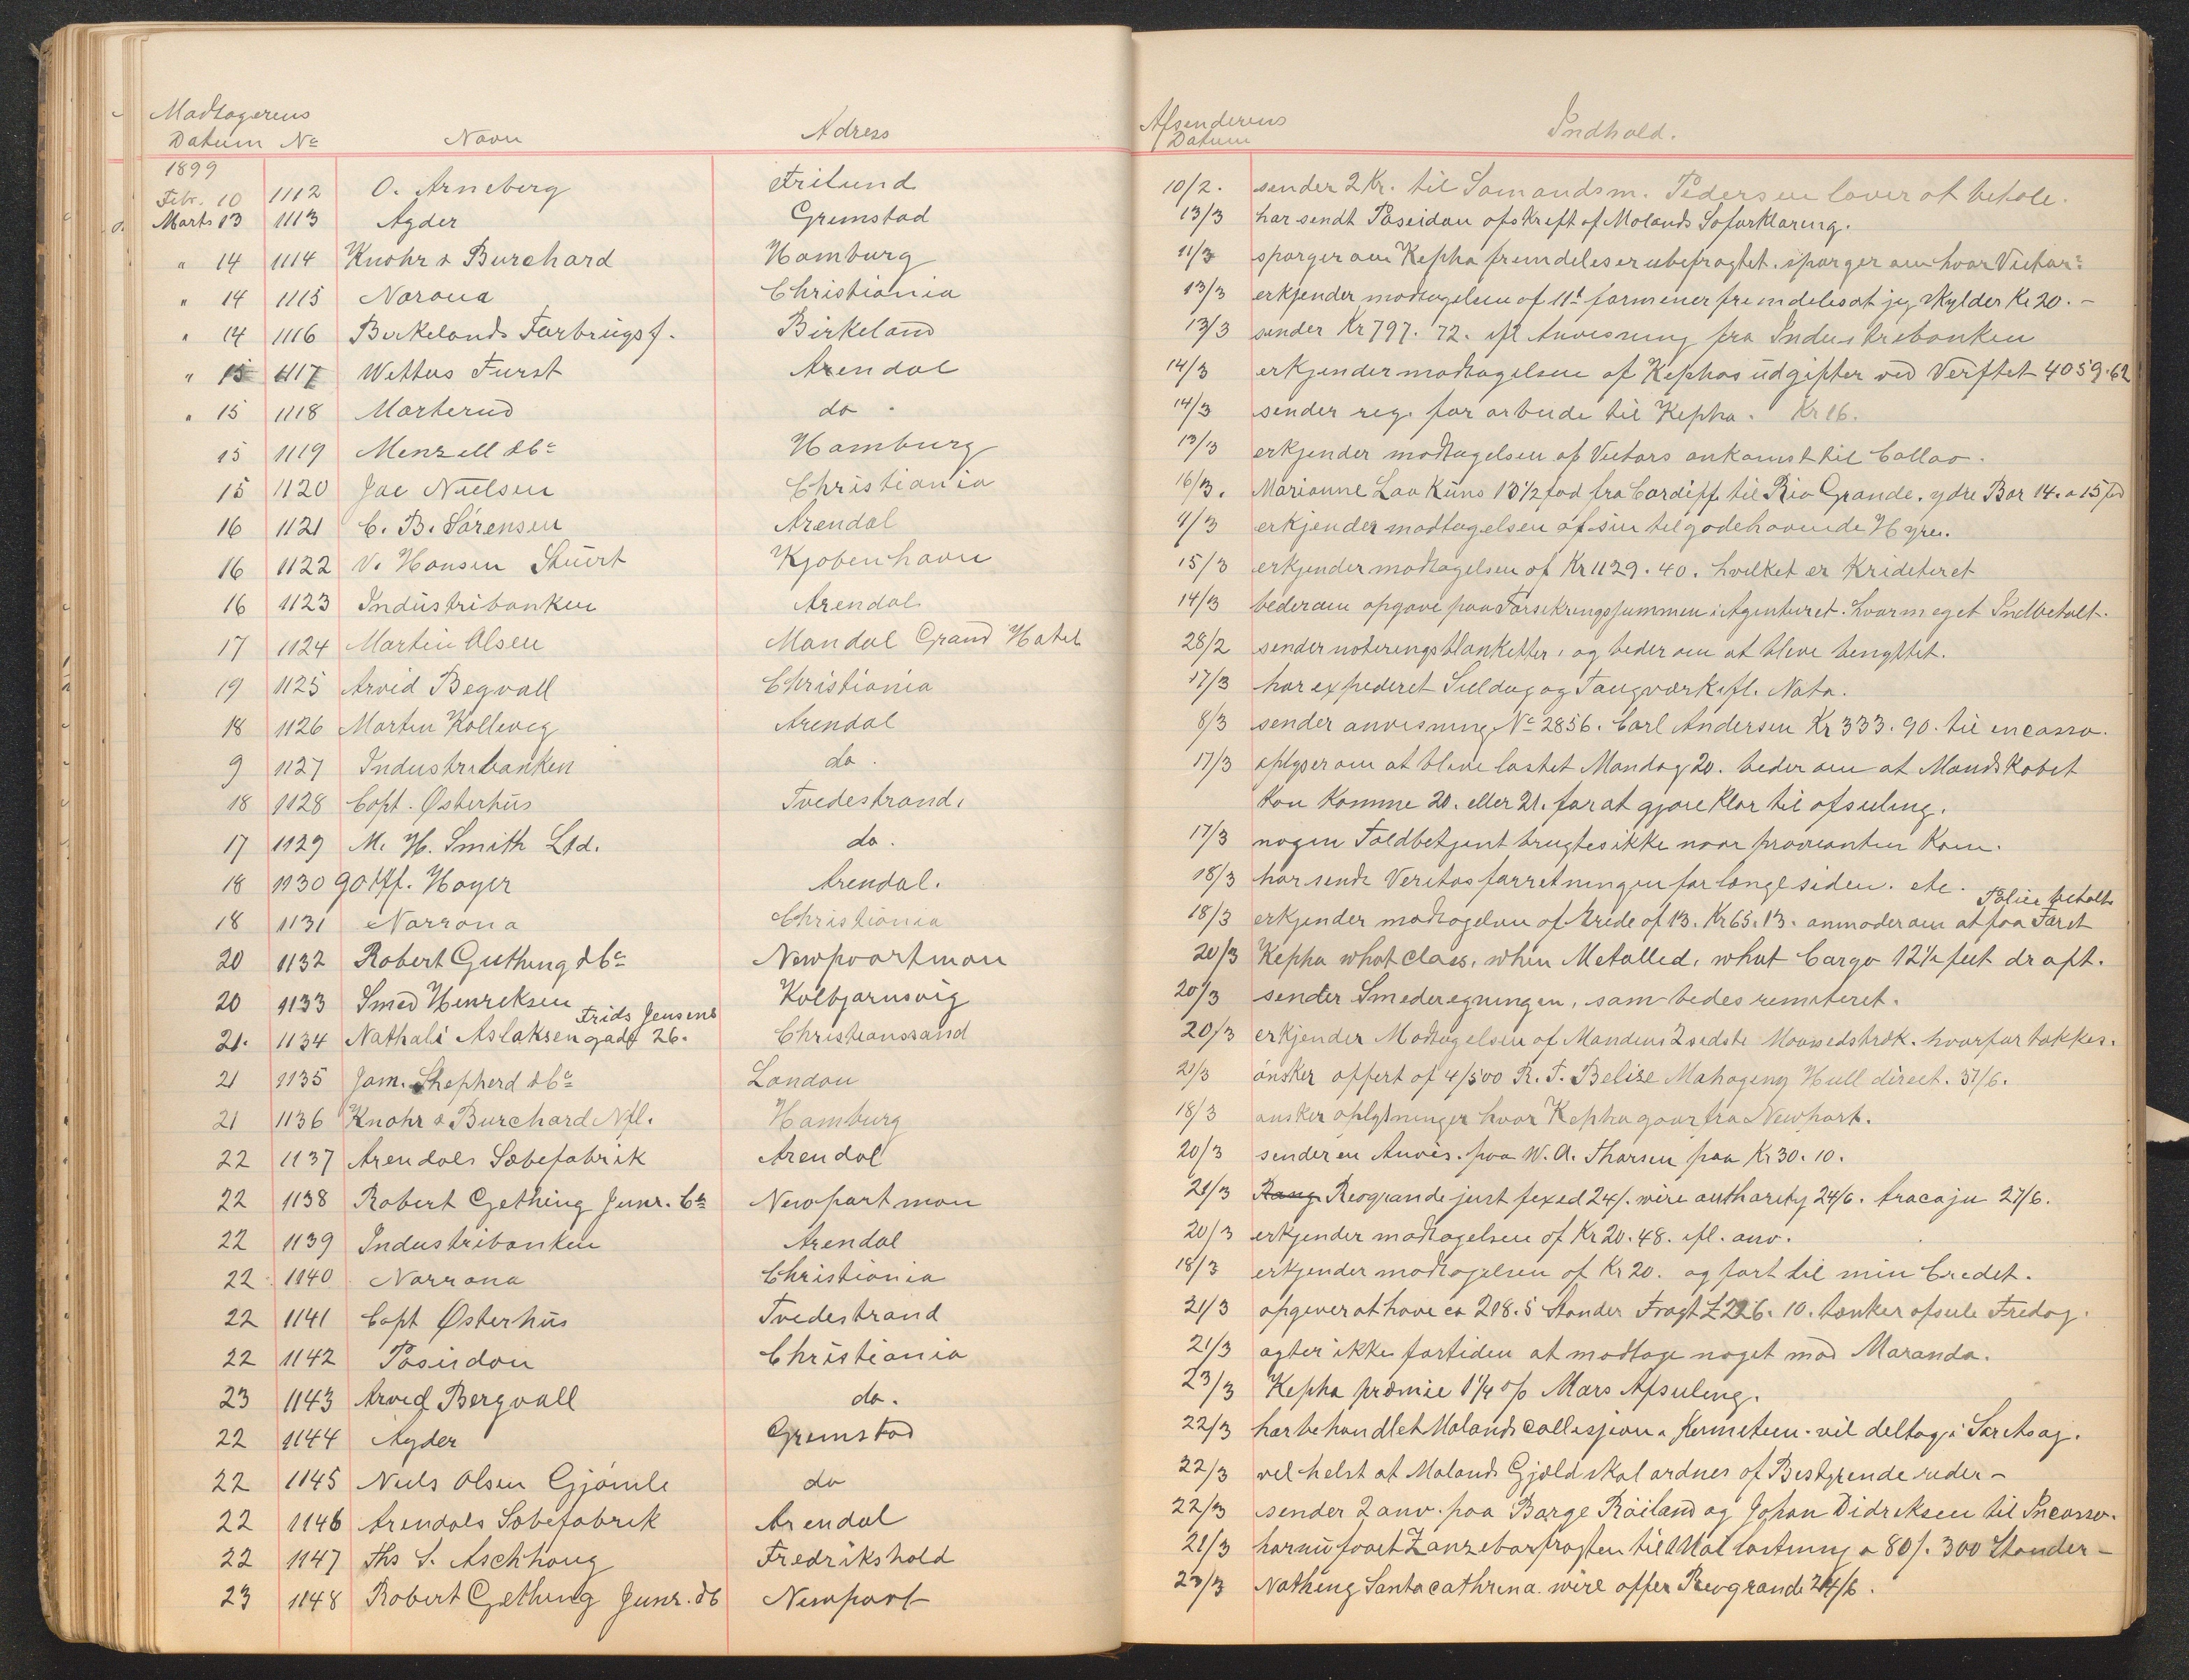 Modtagerens Afsenderens
Datum No Navn Adress Datum Indhold.
1899
Febr. 10 1112 O. Arneberg Frilund 10/2. sender 2 Kr. til Somandsm. Pedersen lover at betale.
Marts 13 1113 Agder Gremstad 13/3 har sendt Poseidon afskreft af Molands Soforklaring.
" 14 1114 Knohr & Burchard Hamburg 11/3 sporger om Kepha fremdeles er ubefragtet. sporger om hvor Victor:
" 14 1115 Norona Christiania 13/3 erkjender modtagelsen af 11t formener fremdeles at jeg skylder Kr 20. -
" 14 1116 Birkelands Forbrugsf. Birkeland 13/3 sender Kr 797. 72. ifl Anvesning fra Industribanken
" 15 1117 Wettus Furst Arendal 14/3 erkjender modtagelsen af Kephas udgifter ved Verftet 4059.62
" 15 1118 Marterud do. 14/3 sender reg. for arbeide til Kepha. Kr 16.
15 1119 Menzell & Co Hamburg 13/3 erkjender modtagelsen af Victors ankomst til Callao.
15 1120 Jac Nielsen Christiania 16/3. Marianne Laa Kuns 13 1/2 fod fra Cardiff til Rio Grande. ydre Bar 14. a 15 fod
16 1121 C. B. Sörensen Arendal 4/3 erkjender modtagelsen af sin tilgodehavende Hyre.
16 1122 V. Hansen Stuert Kjobenhavn 15/3 erkjender modtagelsen af Kr 1129. 40. hvilket er Krideteret
16 1123 Industribanken Arendal 14/3 beder om opgave paa Forsekringssummen i Agenturet. hvormeget Indbetalt.
17 1124 Martin Olsen Mandal Grand Hotel 28/2 sender noteringsblanketter, og beder om at bleve benyttet.
19 1125 Arvid Begvall Christiania 17/3 har expederet Seildug og Taugværk ifl. Nota.
18 1126 Morten Kalleveg Arendal 8/3 sender anvesning No 2856. Carl Andersen Kr 333. 90. til incasso.
9 1127 Industribanken do. 17/3 oplyser om at bleve lastet Mandag 20. beder om at Mandskabet
18 1128 Capt. Østerhus Tvedestrand, kan komme 20. eller 21. for at gjore klar til afseiling.
17 1129 M. H. Smith Ltd. do. 17/3 nogen Toldbetjent brugtes ikke naar provianten kom.
18 1130 Gottf. Hoyer Arendal. 18/3 har sendt Veritasforretningen for længe siden. etc.
Polise betalts
18 1131 Norrona Christiania 18/3 erkjender modtagelsen af brede af 13. Kr 65. 13. anmoder om at faa Færet
20 1132 Robert Guthing & Co Newpoortmon 20/3 Kepha what class, when Metalled, what Cargo 12 1/2 feet draft.
20 1133 Smed Henreksen Kolbjornsvig 20/3 sender Smederegningen, som bedes remiteret.
Frids Jensens
21. 1134 Nathali Aslaksen gade 26. Christianssand 20/3 erkjender Modtagelsen af Mandens 2 sedste Maanedstræk. hvorfor takkes.
21 1135 Jam. Shepherd & Co London 21/3 ønsker offert af 4/500 R. T. Belize Mahogeny Hull direct. 37/6.
21 1136 Knohr & Burchard Nfl. Hamburg 18/3 onsker oplysninger hvor Kepha gaar fra Newport.
22 1137 Arendals Sæbefabrik Arendal 20/3 sender en Anvis. paa W. A. Thorsen paa Kr 30. 10.
22 1138 Robert Gething Junr. Co Newportmon 21/3 Rang Reogrande just fexed 24/. wire authority 24/6. Aracaju 27/6.
22 1139 Industribanken Arendal 20/3 erkjender modtagelsen af Kr 20. 48. ifl. anv.
22 1140 Norrona Christiania 18/3 erkjender modtagelsen af Kr 20. og fort til min Credet.
22 1141 Capt Østerhus Tvedestrand 21/3 opgever at have ca 218. 5 Stander Fragt £ 226. 10. tænker afseile Fredag.
22 1142 Poseidon Christiania 21/3 agter ikke fortiden at modtage noget mod Maranda.
23 1143 Arvid Bergvall do. 23/3 Kepha præmie 1 1/4 o/o Mars Afseiling.
22 1144 Agder Gremstad 22/3 har behandlet Molands collesjon i Komiteen. vil deltage i Søretsag.
22 1145 Niels Olsen Gjömle do 22/3 vel helst at Molands Gjæld skal ordnes af Bestyrende reder -
22 1146 Arendals Sæbefabrik Arendal 22/3 sender 2 anv. paa Børge Röiland og Johan Didreksen til Incasso.
22 1147 Ths S. Aschhoug Fredrikshald 21/3 har nu faaet Zanzebarfragten til Mai lastning a 80/. 300 Stander -
23 1148 Robert Gething Junr. & C Newport 23/3 Nothing Santacathrina. wire offer Reogrande 24/6.